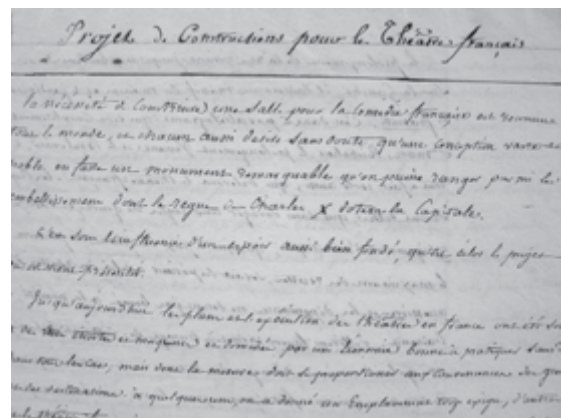 Projet de Constructions pour le Théâtre français
la nécessité de Construire une Salle pour la Comédie française est reconnue
tout le monde, et chacun aussi desire sans doute qu'une conception vaste et
noble, en fasse un monument remarquable qu'on puisse ranger parmi les
embellissemens dont le regne de Charles X dotera la Capitale.
C'est sous l'influence d'un espoir aussi bien fondé, qu'est éclos le projet
présenté.
Jusqu'aujourd'hui les plans et l'exécution des théâtres en france ont été
par une économie bonne à pratiquer sans
tous les cas, mais dont la mesure doit se proportionner aux
à quelques uns, on a donné un Emplacement trop exigu, d'autres